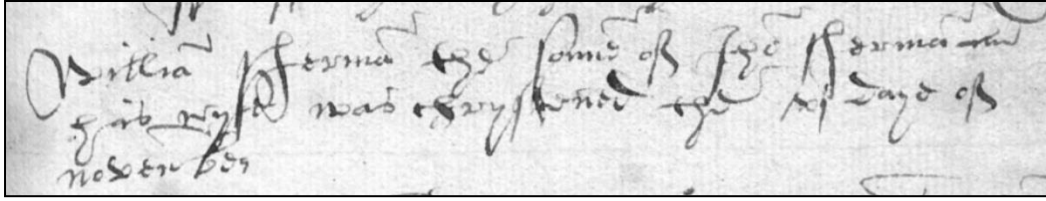 Willia̅ Sherma̅ the sonne of Jho̅ Sherma̅
his wyfe was chrystened the xj daye of
november